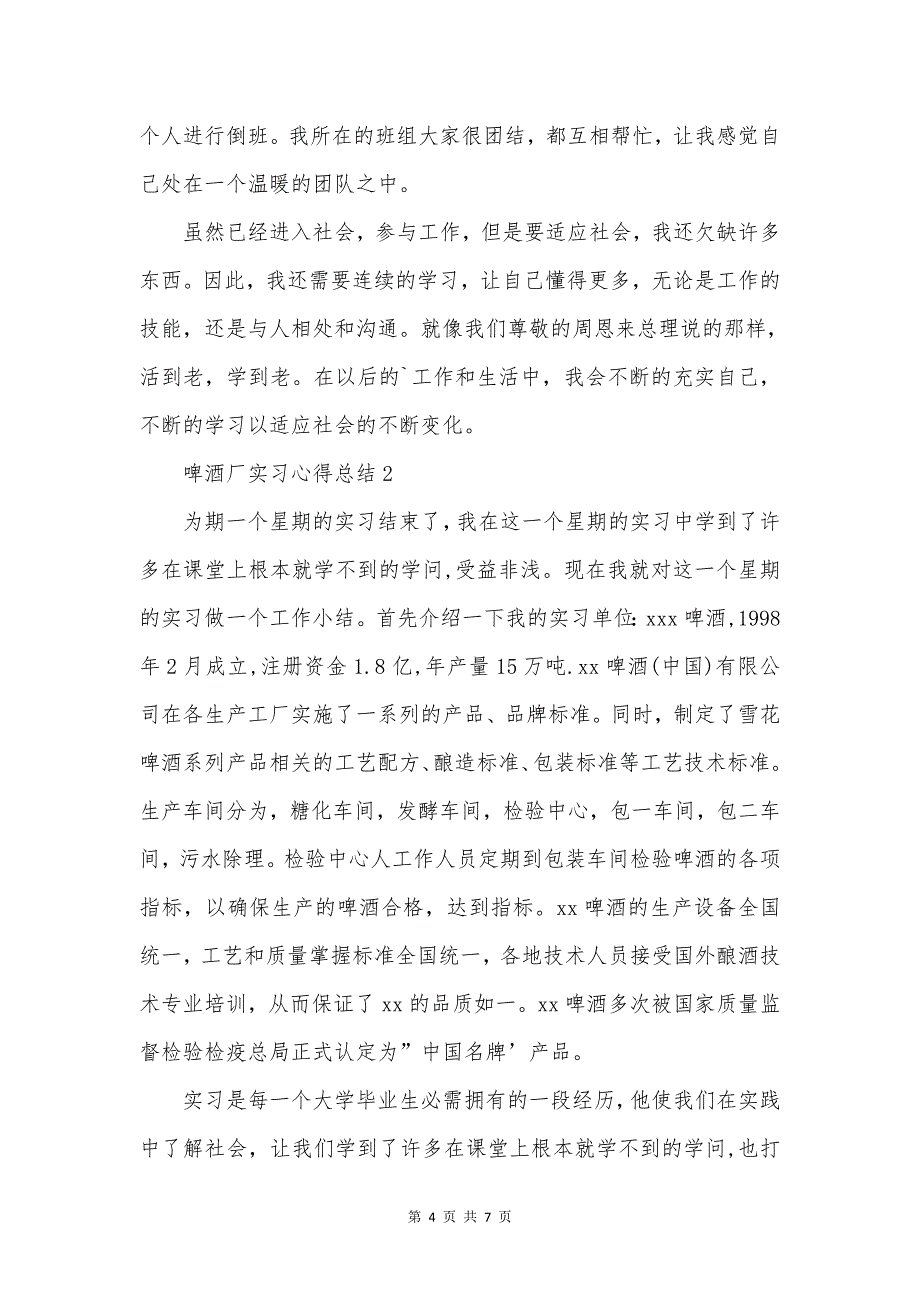 个人进行倒班。我所在的班组大家很团结，都互相帮忙，让我感觉自
己处在一个温暖的团队之中。
虽然已经进入社会，参与工作，但是要适应社会，我还欠缺许多
东西。因此，我还需要连续的学习，让自己懂得更多，无论是工作的
技能，还是与人相处和沟通。就像我们尊敬的周恩来总理说的那样，
活到老，学到老。在以后的`工作和生活中，我会不断的充实自己，
不断的学习以适应社会的不断变化。
啤酒厂实习心得总结2
为期一个星期的实习结束了,我在这一个星期的实习中学到了许
多在课堂上根本就学不到的学问,受益非浅。现在我就对这一个星期
的实习做一个工作小结。首先介绍一下我的实习单位:xxx啤酒,1998
年2月成立,注册资金1.8亿,年产量15万吨.xx啤酒(中国)有限公
司在各生产工厂实施了一系列的产品、品牌标准。同时，制定了雪花
啤酒系列产品相关的工艺配方、酿造标准、包装标准等工艺技术标准。
生产车间分为，糖化车间，发酵车间，检验中心，包一车间，包二车
间，污水除理。检验中心人工作人员定期到包装车间检验啤酒的各项
指标，以确保生产的啤酒合格，达到指标。xx啤酒的生产设备全国
统一，工艺和质量掌握标准全国统一，各地技术人员接受国外酿酒技
术专业培训，从而保证了xx的品质如一。xx啤酒多次被国家质量监
督检验检疫总局正式认定为”中国名牌’产品。
实习是每一个大学毕业生必需拥有的一段经历,他使我们在实践
中了解社会，让我们学到了许多在课堂上根本就学不到的学问,也打
第 4 页 共 7 页